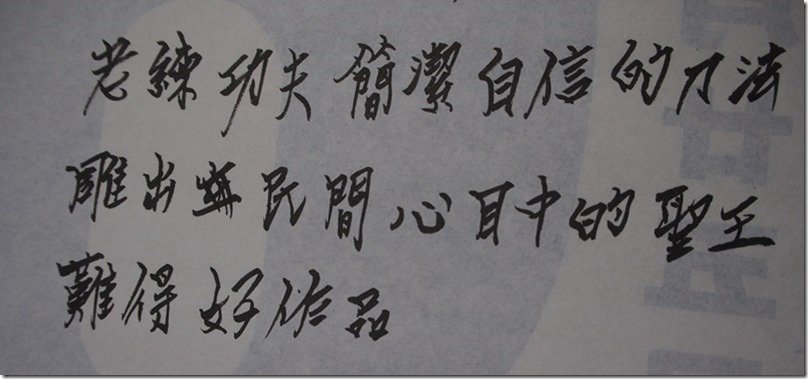 老練功夫簡潔自信的刀法
雕出與民間心目中的聖王
難得好作品